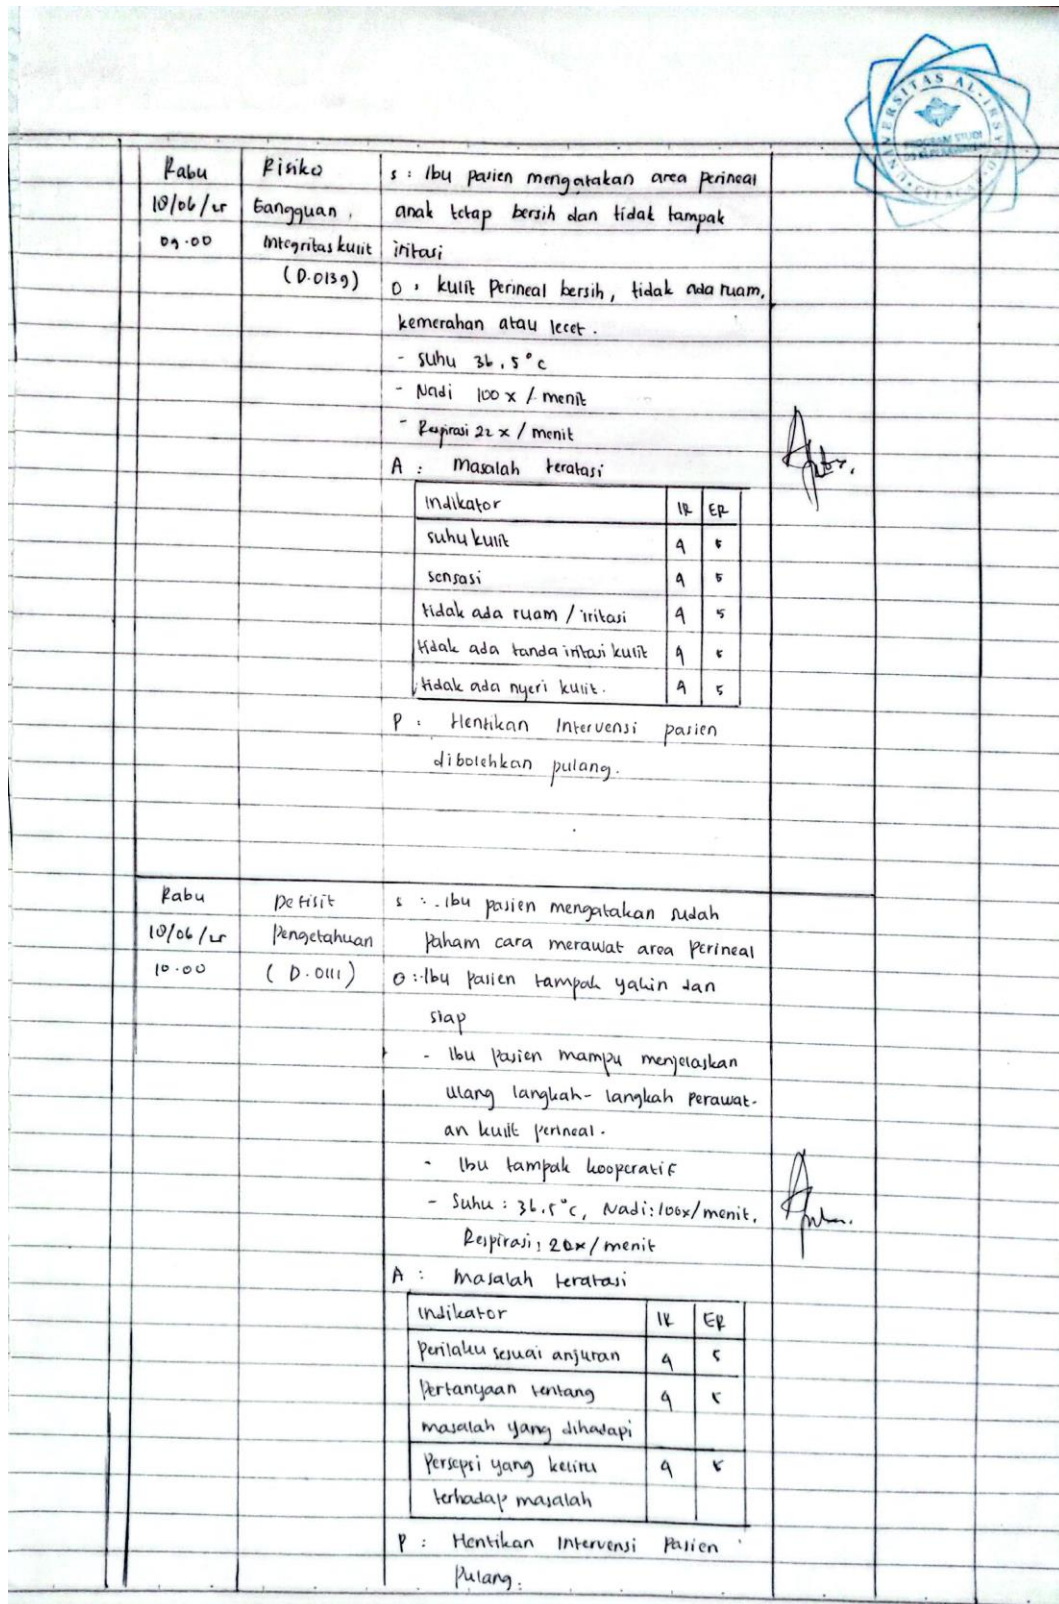 UNIVERSITAS AL-IRSYAD
PROGRAM STUDI
CILACAP
Rabu
18/06/25
09.00
Risiko
Gangguan
Integritas kulit
(D.0139)
S : Ibu pasien mengatakan area perineal
anak tetap bersih dan tidak tampak
iritasi
O : kulit perineal bersih, tidak ada ruam,
kemerahan atau lecet.
- suhu 36,5°C
- Nadi 100 x / menit
- Respirasi 22 x / menit
A : Masalah teratasi
Indikator IR ER
suhu kulit 4 5
sensasi 4 5
tidak ada ruam / iritasi 4 5
tidak ada tanda iritasi kulit 4 5
tidak ada nyeri kulit. 4 5
P : Hentikan Intervensi pasien
dibolehkan pulang.
Rabu
18/06/25
10.00
Defisit
Pengetahuan
(D.0111)
S : Ibu pasien mengatakan sudah
paham cara merawat area perineal
O : Ibu pasien tampak yakin dan
siap
- Ibu pasien mampu menjelaskan
ulang langkah-langkah perawat-
an kulit perineal.
- Ibu tampak kooperatif
- Suhu : 36.5°C, Nadi : 100x/menit,
Respirasi : 20x/menit
A : Masalah teratasi
Indikator IR ER
Perilaku sesuai anjuran 4 5
Pertanyaan tentang 4 5
masalah yang dihadapi
Persepsi yang keliru 4 5
terhadap masalah
P : Hentikan Intervensi Pasien
Pulang.